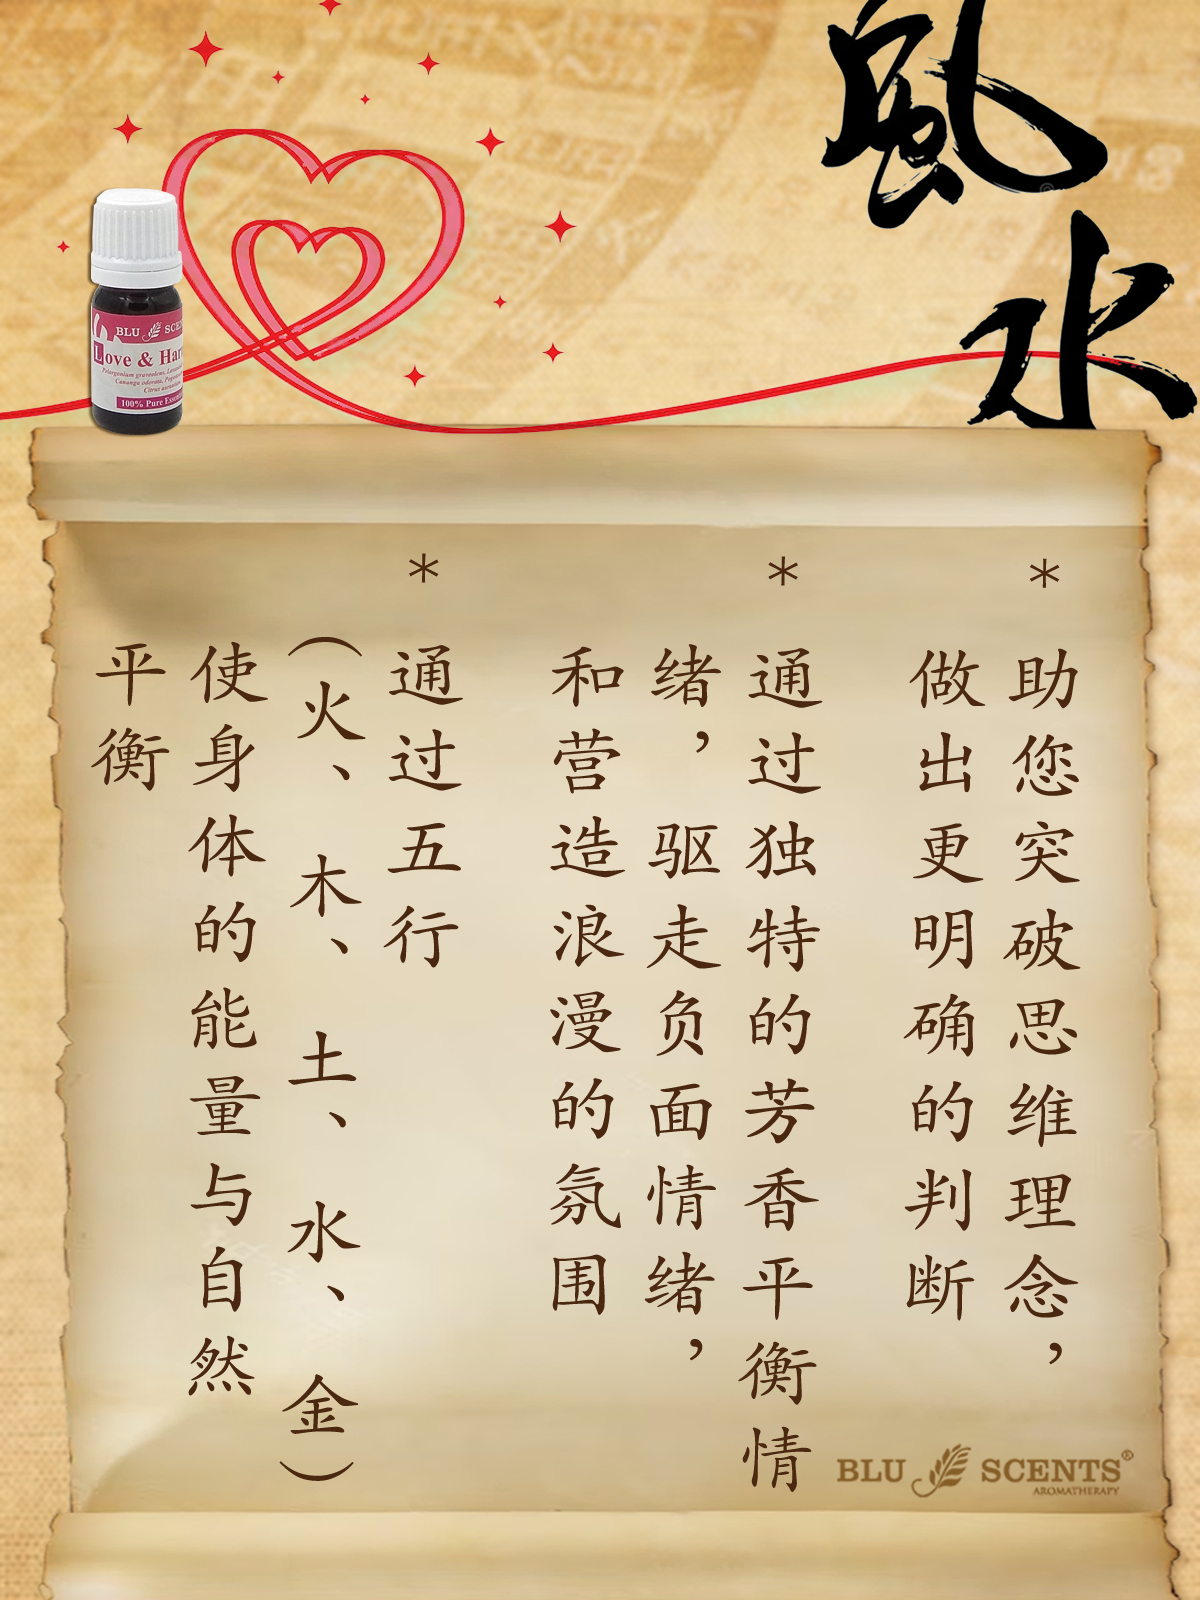 風水
BLU SCEN
Love & Har
Pelargonium graveolens, Lavan
Cananga odorata, Pogo
Citrus
100% Pure Esse
*
助您突破思维理念，
做出更明确的判断
*
通过独特的芳香平衡情
绪，驱走负面情绪，
和营造浪漫的氛围
*
通过五行
（火、木、土、水、金）
使身体的能量与自然
平衡
BLU SCENTS®
AROMATHERAPY